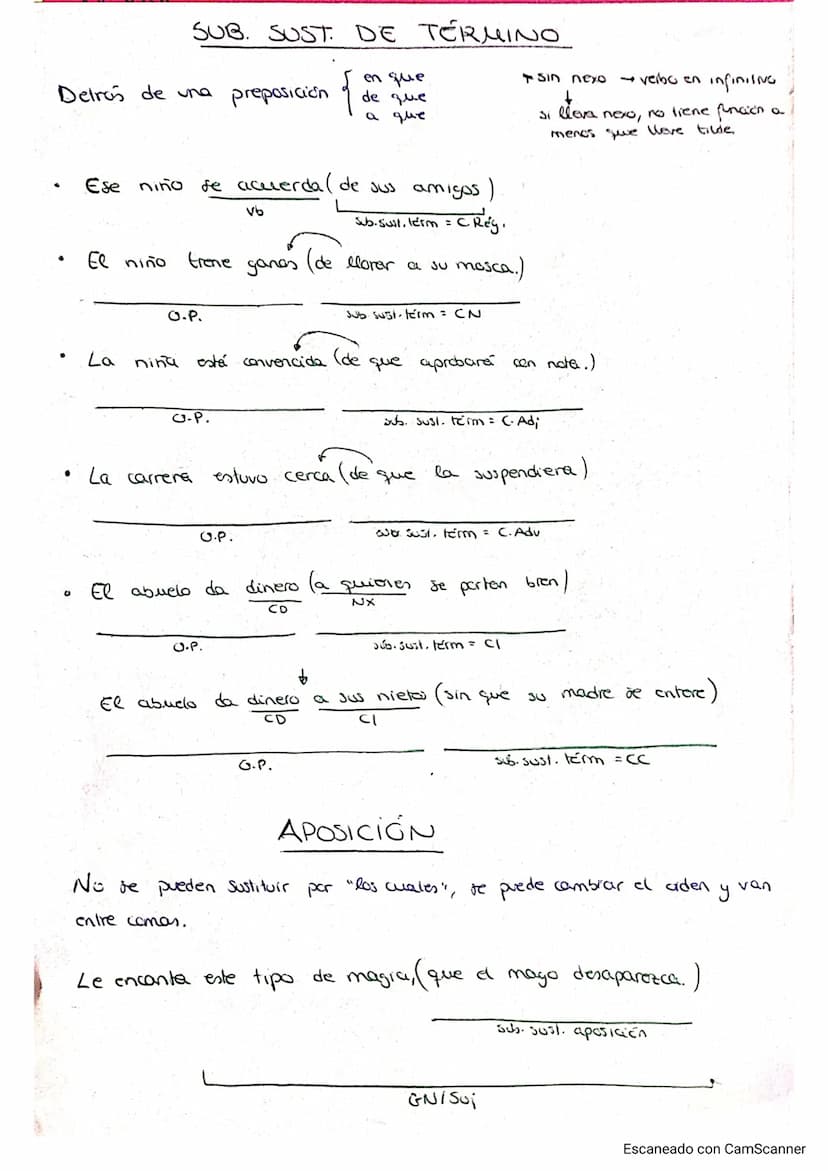 SUB. SUST. DE TÉRMINO
Detrás de una preposición { en que
de que
a que
* sin nexo → verbo en infinitivo
↓
si lleva nexo, no tiene función a
menos que lleve tilde.
• Ese niño se acuerda (de sus amigos)
Vb
sub. sust. térm = C Rég.
• El niño tiene ganas (de llorar a su mosca.)
O.P.
sub sust. térm = CN
• La niña está convencida (de que aprobará con nota.)
O.P.
sub. sust. térm = C. Adj
• La carrera estuvo cerca (de que la suspendiera)
O.P.
sub. sust. térm = C. Adv
• El abuelo da dinero (a quienes se porten bien)
CD
NX
O.P.
sub. sust. térm = CI
↓
El abuelo da dinero a sus nietos (sin que su madre se entere)
CD
CI
O.P.
sub. sust. térm = CC
APOSICIÓN
No se pueden sustituir por "los cuales", se puede cambiar el orden y van
entre comas.
Le encanta este tipo de magia, (que el mago desaparezca.)
sub. sust. aposición
GN/Suj
Escaneado con CamScanner